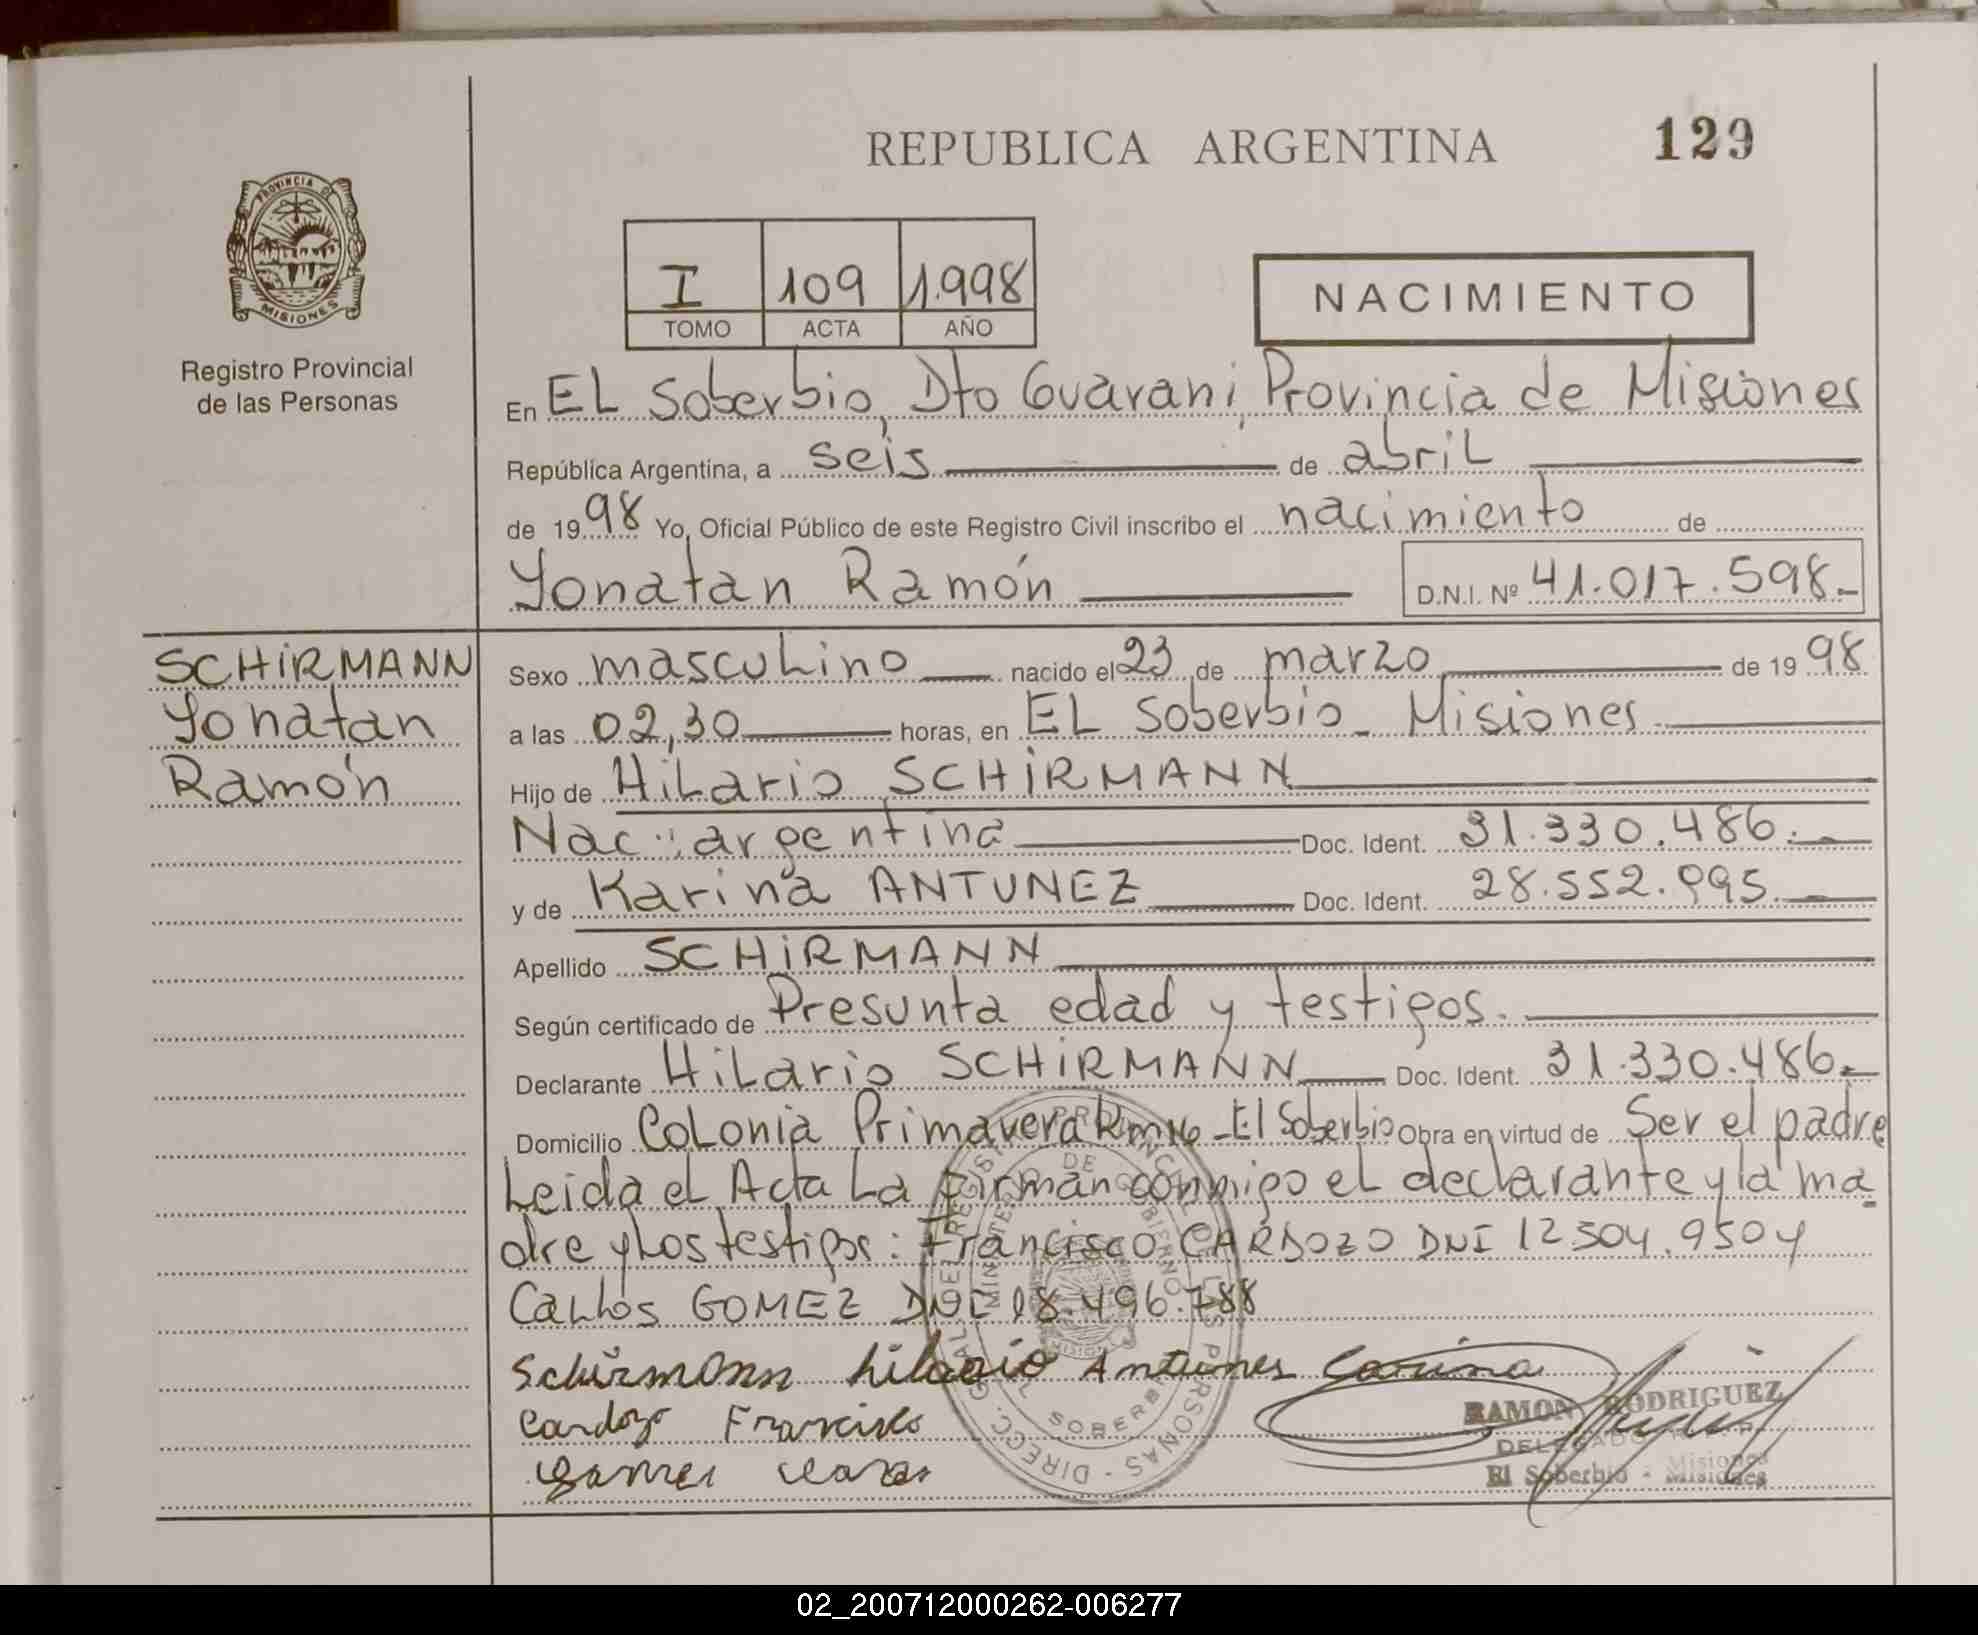 REPUBLICA ARGENTINA
129
PROVINCIA DE
MISIONES
Registro Provincial
de las Personas
I 109 1.998
TOMO ACTA AÑO
NACIMIENTO
En EL Soberbio, Dto Guarani, Provincia de Misiones
República Argentina, a seis de abril
de 1998 Yo, Oficial Público de este Registro Civil inscribo el nacimiento de
Yonatan Ramón D.N.I. Nº 41.017.598.-
SCHiRMANN
Yonatan
Ramón
Sexo masculino nacido el 23 de marzo de 1998
a las 02,30 horas, en EL Soberbio - Misiones
Hijo de Hilario SCHiRMANN
Nac.: argentina Doc. Ident. 31.330.486.-
y de Karina ANTUNEZ Doc. Ident. 28.552.995.-
Apellido SCHiRMANN
Según certificado de Presunta edad y testigos.
Declarante Hilario SCHiRMANN Doc. Ident. 31.330.486.-
Domicilio Colonia Primavera Km16 - El Soberbio Obra en virtud de Ser el padre
Leida el Acta La firman conmigo el declarante y la ma-
dre y Los testigos: Francisco CARDOZO DNI 12504.950 y
Carlos GOMEZ DNI 18.496.788
Schirmann hilario Antunes Carina
Cardozo Francisco
RAMON RODRIGUEZ
DELEGADO
El Soberbio - Misiones
02_200712000262-006277